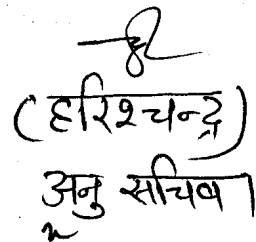 (हरिश्चन्द्र)
अनु सचिव।